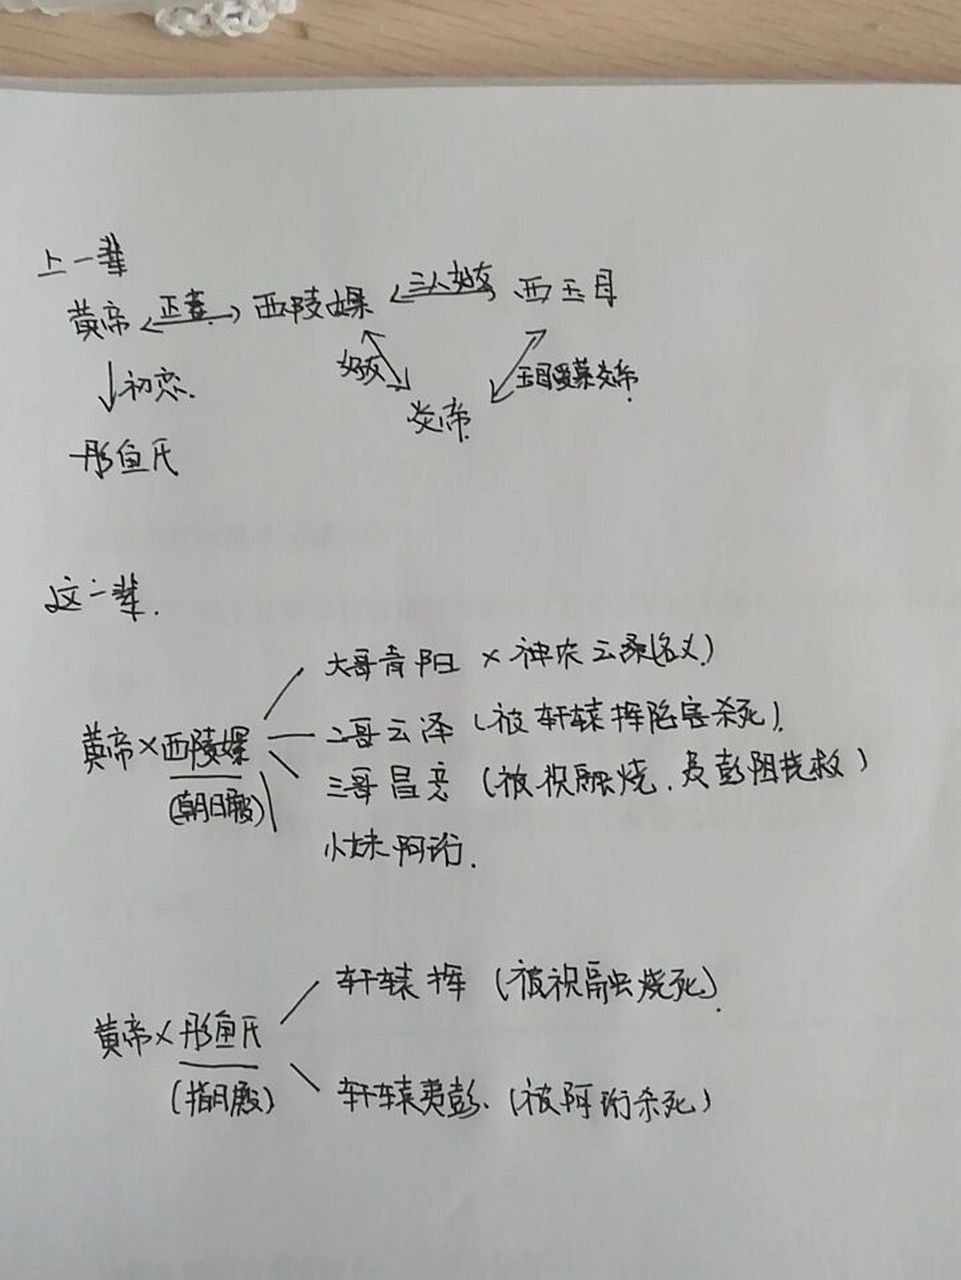 上一辈
黄帝 正妻 西陵嫘 三人好友 西王母
初恋. 好友 王母爱慕炎帝.
炎帝.
彤鱼氏
这一辈.
大哥青阳 × 神农云桑(名义)
黄帝×西陵嫘 二哥云泽 (被轩辕挥陷害杀死).
(朝日殿) 三哥昌意 (被祝融烧.夷彭阻挠救)
小妹阿珩.
轩辕挥 (被祝融烧死).
黄帝×彤鱼氏
(指月殿) 轩辕夷彭. (被阿珩杀死)